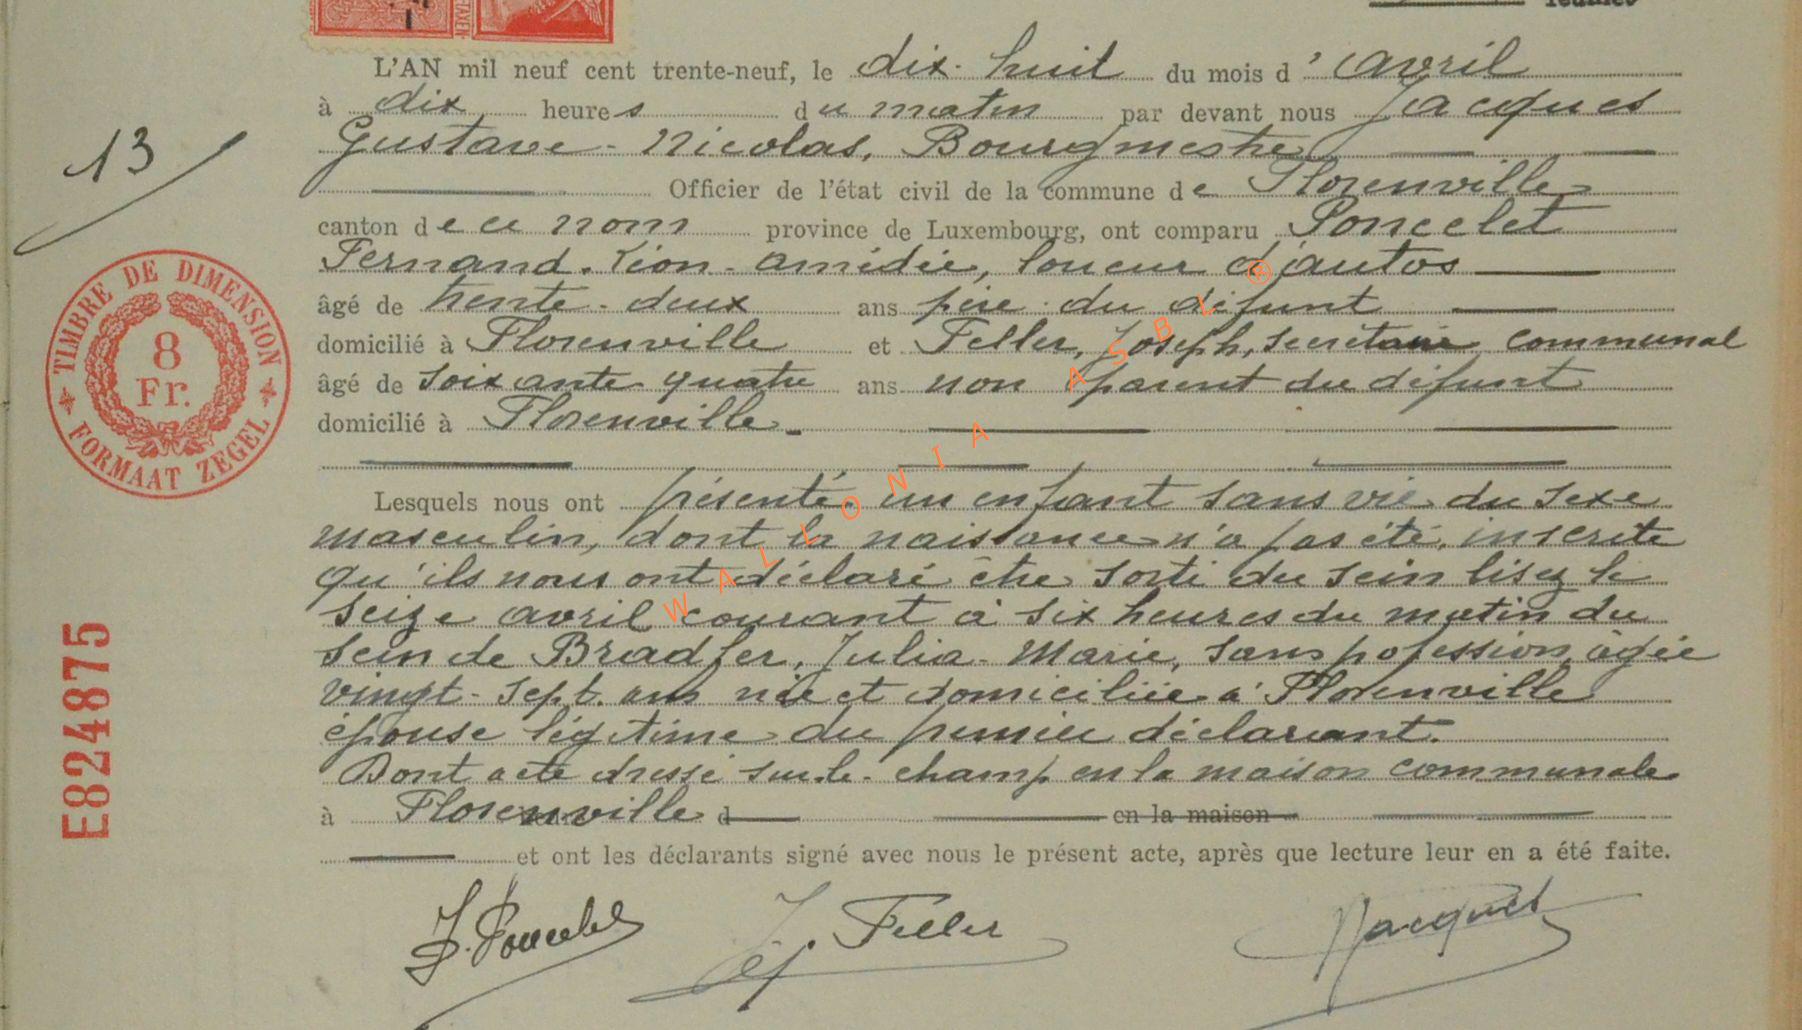 feuillet
L'AN mil neuf cent trente-neuf, le dix-huit du mois d'avril
à dix heures du matin par devant nous Jacques
Gustave-Nicolas, Bourgmestre
13
Officier de l'état civil de la commune de Florenville
canton de ce nom province de Luxembourg, ont comparu Poncelet
Fernand-Léon-Amédée, loueur d'autos
âgé de trente-deux ans père du défunt
domicilié à Florenville et Feller, Joseph, secrétaire communal
âgé de soixante quatre ans non parent du défunt
domicilié à Florenville
TIMBRE DE DIMENSION
8
Fr.
FORMAAT ZEGEL
Lesquels nous ont présenté un enfant sans vie du sexe
masculin, dont la naissance n'a pas été inscrite
qu'ils nous ont déclaré être sorti du sein lisez le
seize avril courant à six heures du matin du
sein de Bradfer, Julia-Marie, sans pofession, âgée
vingt-sept ans née et domiciliée à Florenville
épouse légitime du premier déclarant.
Dont acte dressé sur-le-champ en la maison communale
à Florenville d en la maison
et ont les déclarants signé avec nous le présent acte, après que lecture leur en a été faite.
E824875
F. Poncelet J. Feller Jacques
WALLONIA ASBL ®